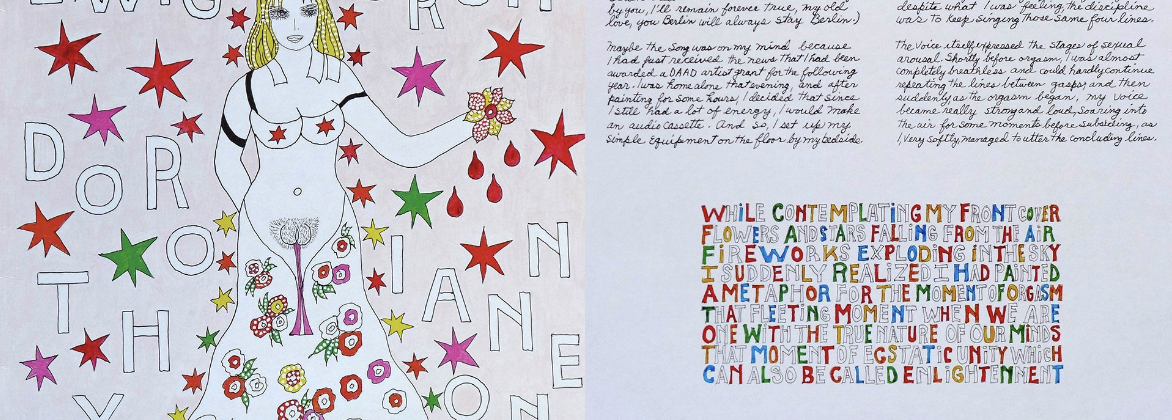 DORO
THY
IAN
NONE
by you, I'll remain forever true, my old
love, you Berlin will always stay Berlin.)
Maybe the song was on my mind because
I had just received the news that I had been
awarded a DAAD artist grant for the following
year. I was home alone that evening, and after
painting for some hours, I decided that since
I still had a lot of energy, I would make
an audio cassette. And so, I set up my
simple equipment on the floor by my bedside.
despite what I was feeling, the discipline
was to keep singing those same four lines.
The voice itself expressed the stages of sexual
arousal. Shortly before orgasm, I was almost
completely breathless and could hardly continue
repeating the lines between gasps, and then
suddenly, as the orgasm began, my voice
became really strong and loud, soaring into
the air for some moments before subsiding, as
I, very softly, managed to utter the concluding lines.
WHILE CONTEMPLATING MY FRONT COVER
FLOWERS AND STARS FALLING FROM THE AIR
FIREWORKS EXPLODING IN THE SKY
I SUDDENLY REALIZED I HAD PAINTED
A METAPHOR FOR THE MOMENT OF ORGASM
THAT FLEETING MOMENT WHEN WE ARE
ONE WITH THE TRUE NATURE OF OUR MINDS
THAT MOMENT OF ECSTATIC UNITY WHICH
CAN ALSO BE CALLED ENLIGHTENMENT